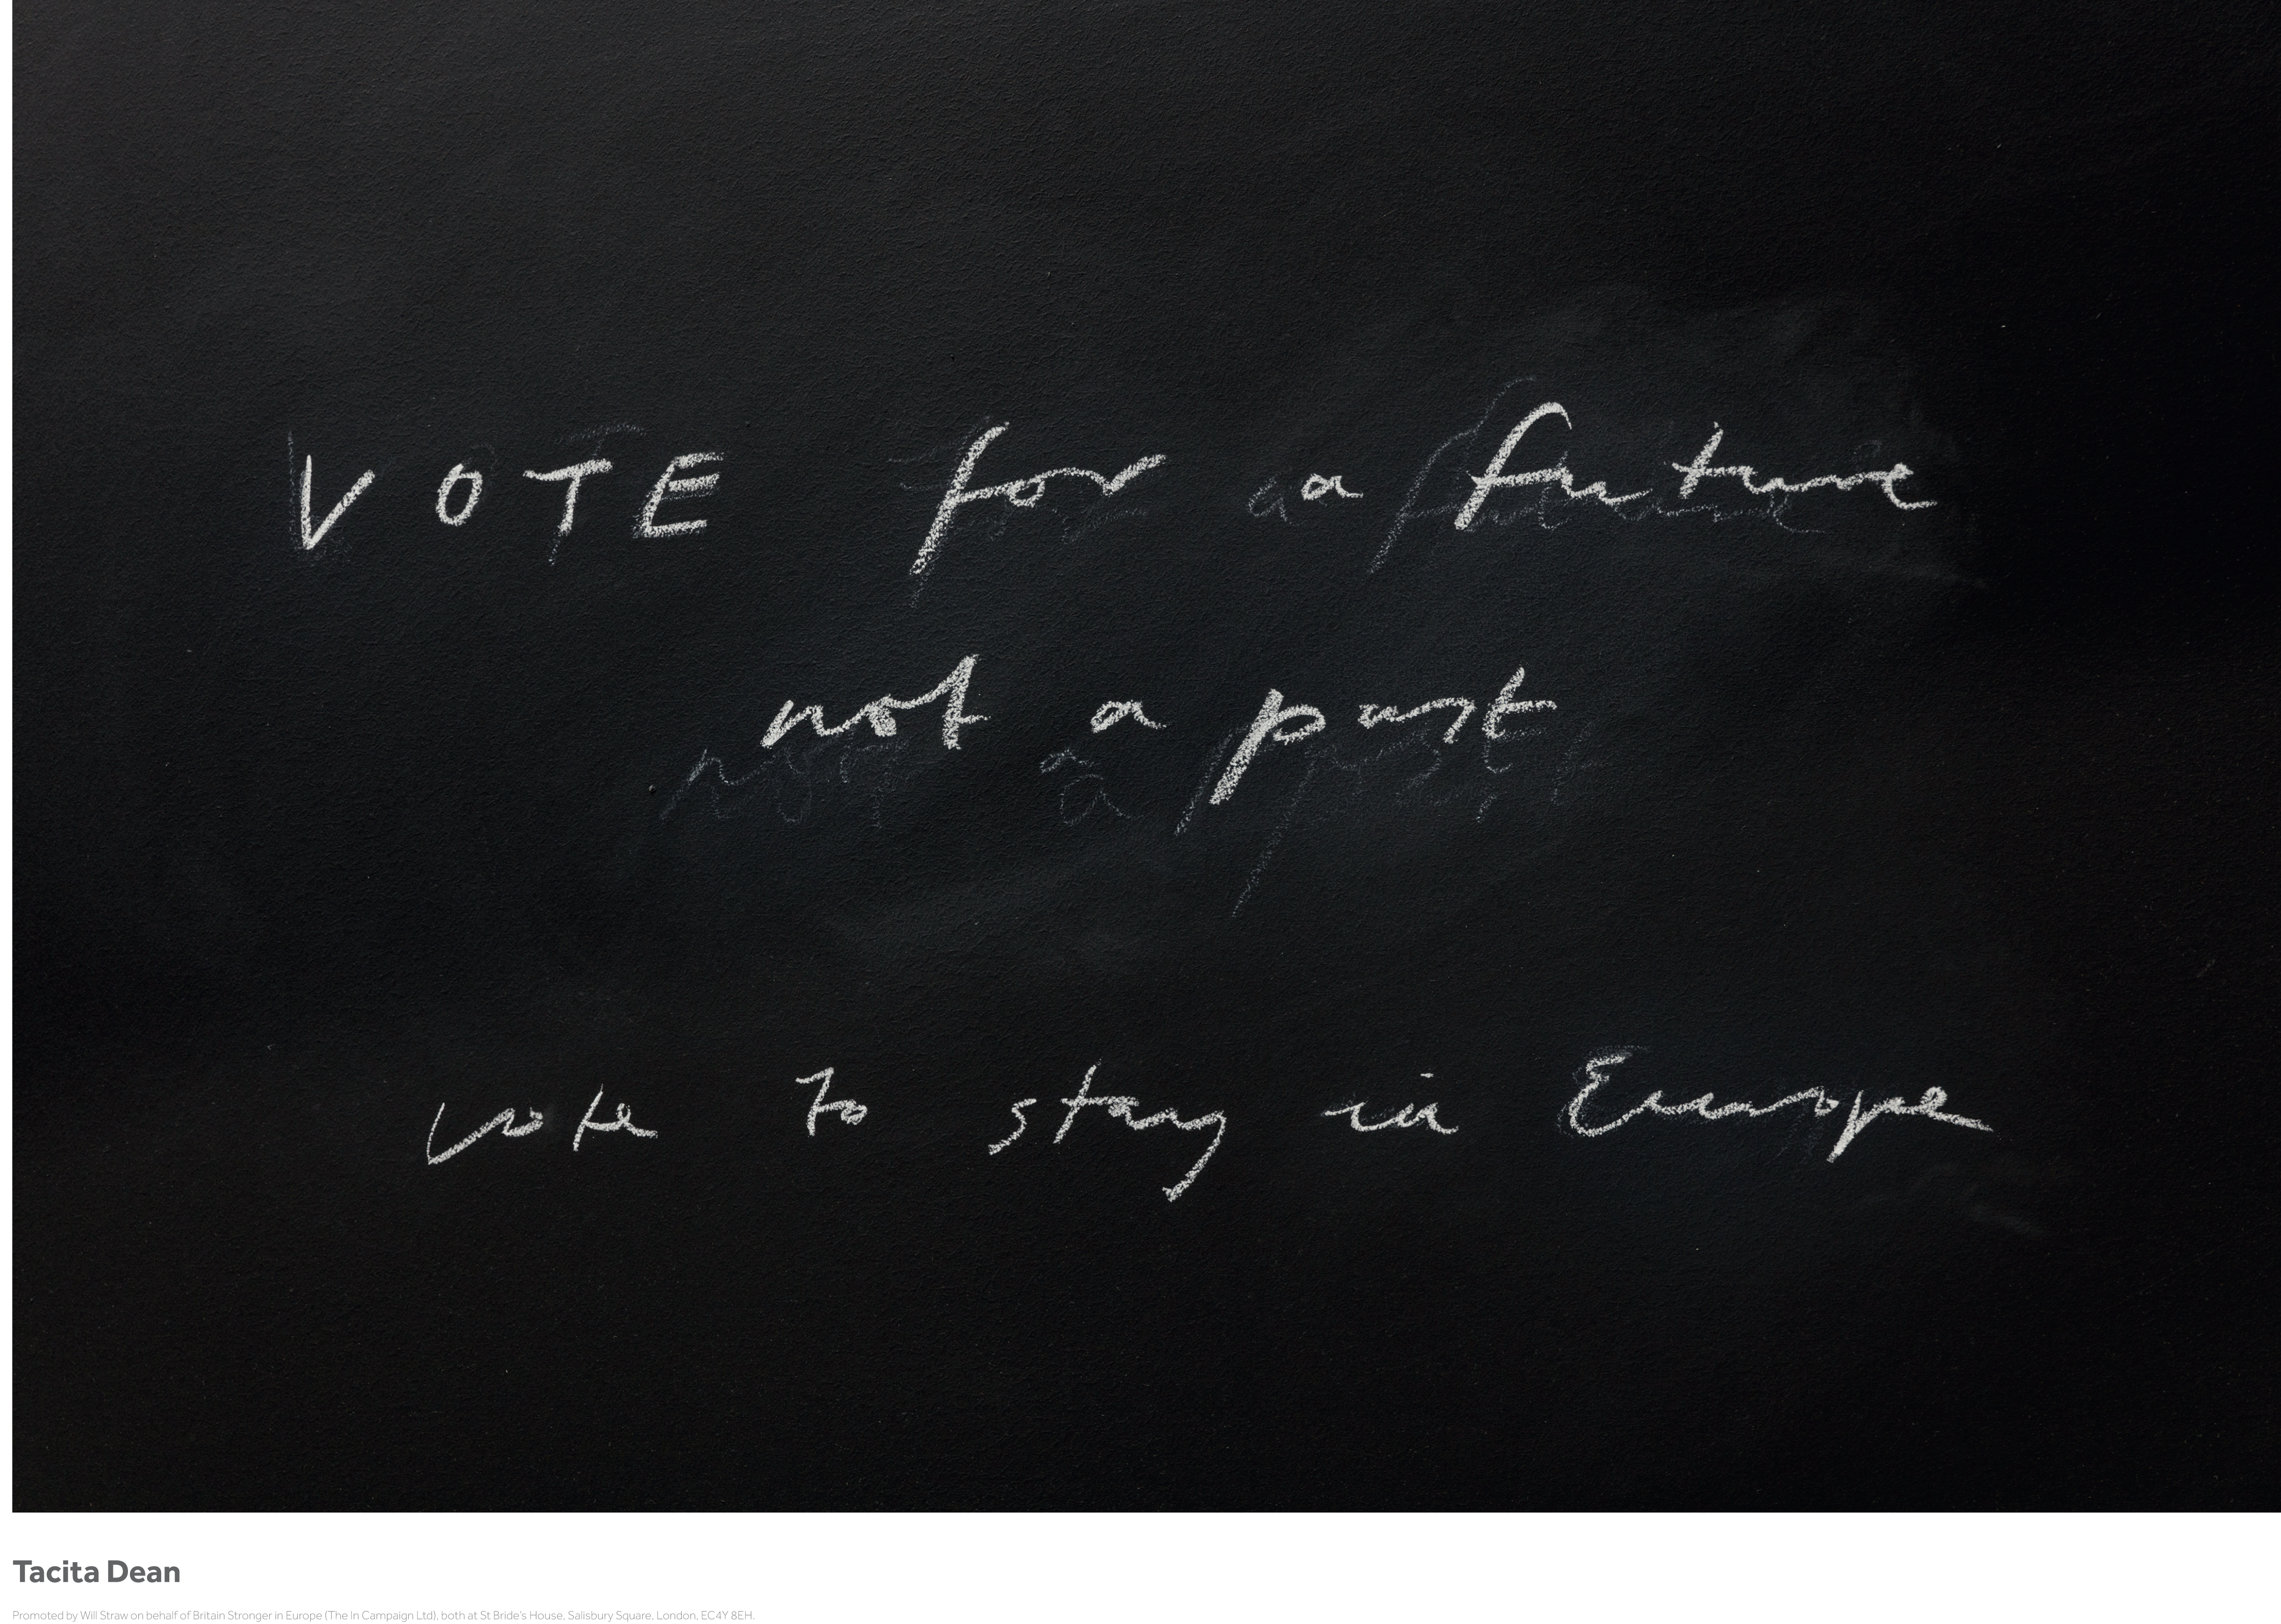 VOTE for a future
not a past
vote to stay in Europe
Tacita Dean
Promoted by Will Straw on behalf of Britain Stronger in Europe (The In Campaign Ltd), both at St Bride's House, Salisbury Square, London, EC4Y 8EH.